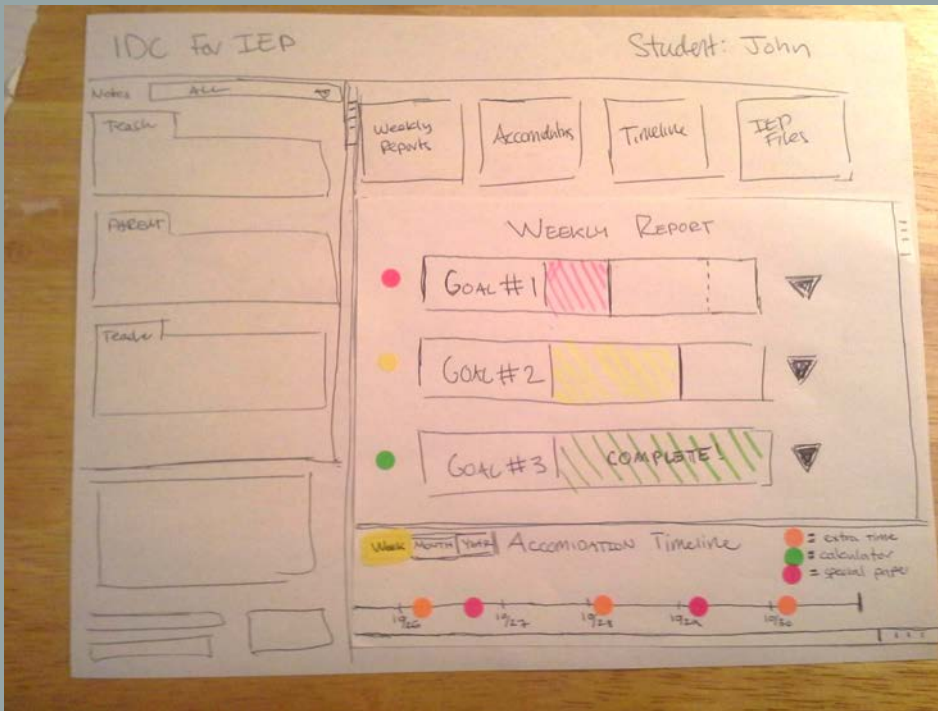 IDC For IEP
Student: John
Notes ALL
Teach
PARENT
Teache
Weekly
Reports
Timeline
IEP
Files
WEEKLY REPORT
GOAL #1
GOAL #2
GOAL #3 COMPLETE!
Week MONTH YEAR ACCOMIDATION Timeline
= extra time
= calculator
= special paper
10/26 10/27 10/28 10/29 10/30